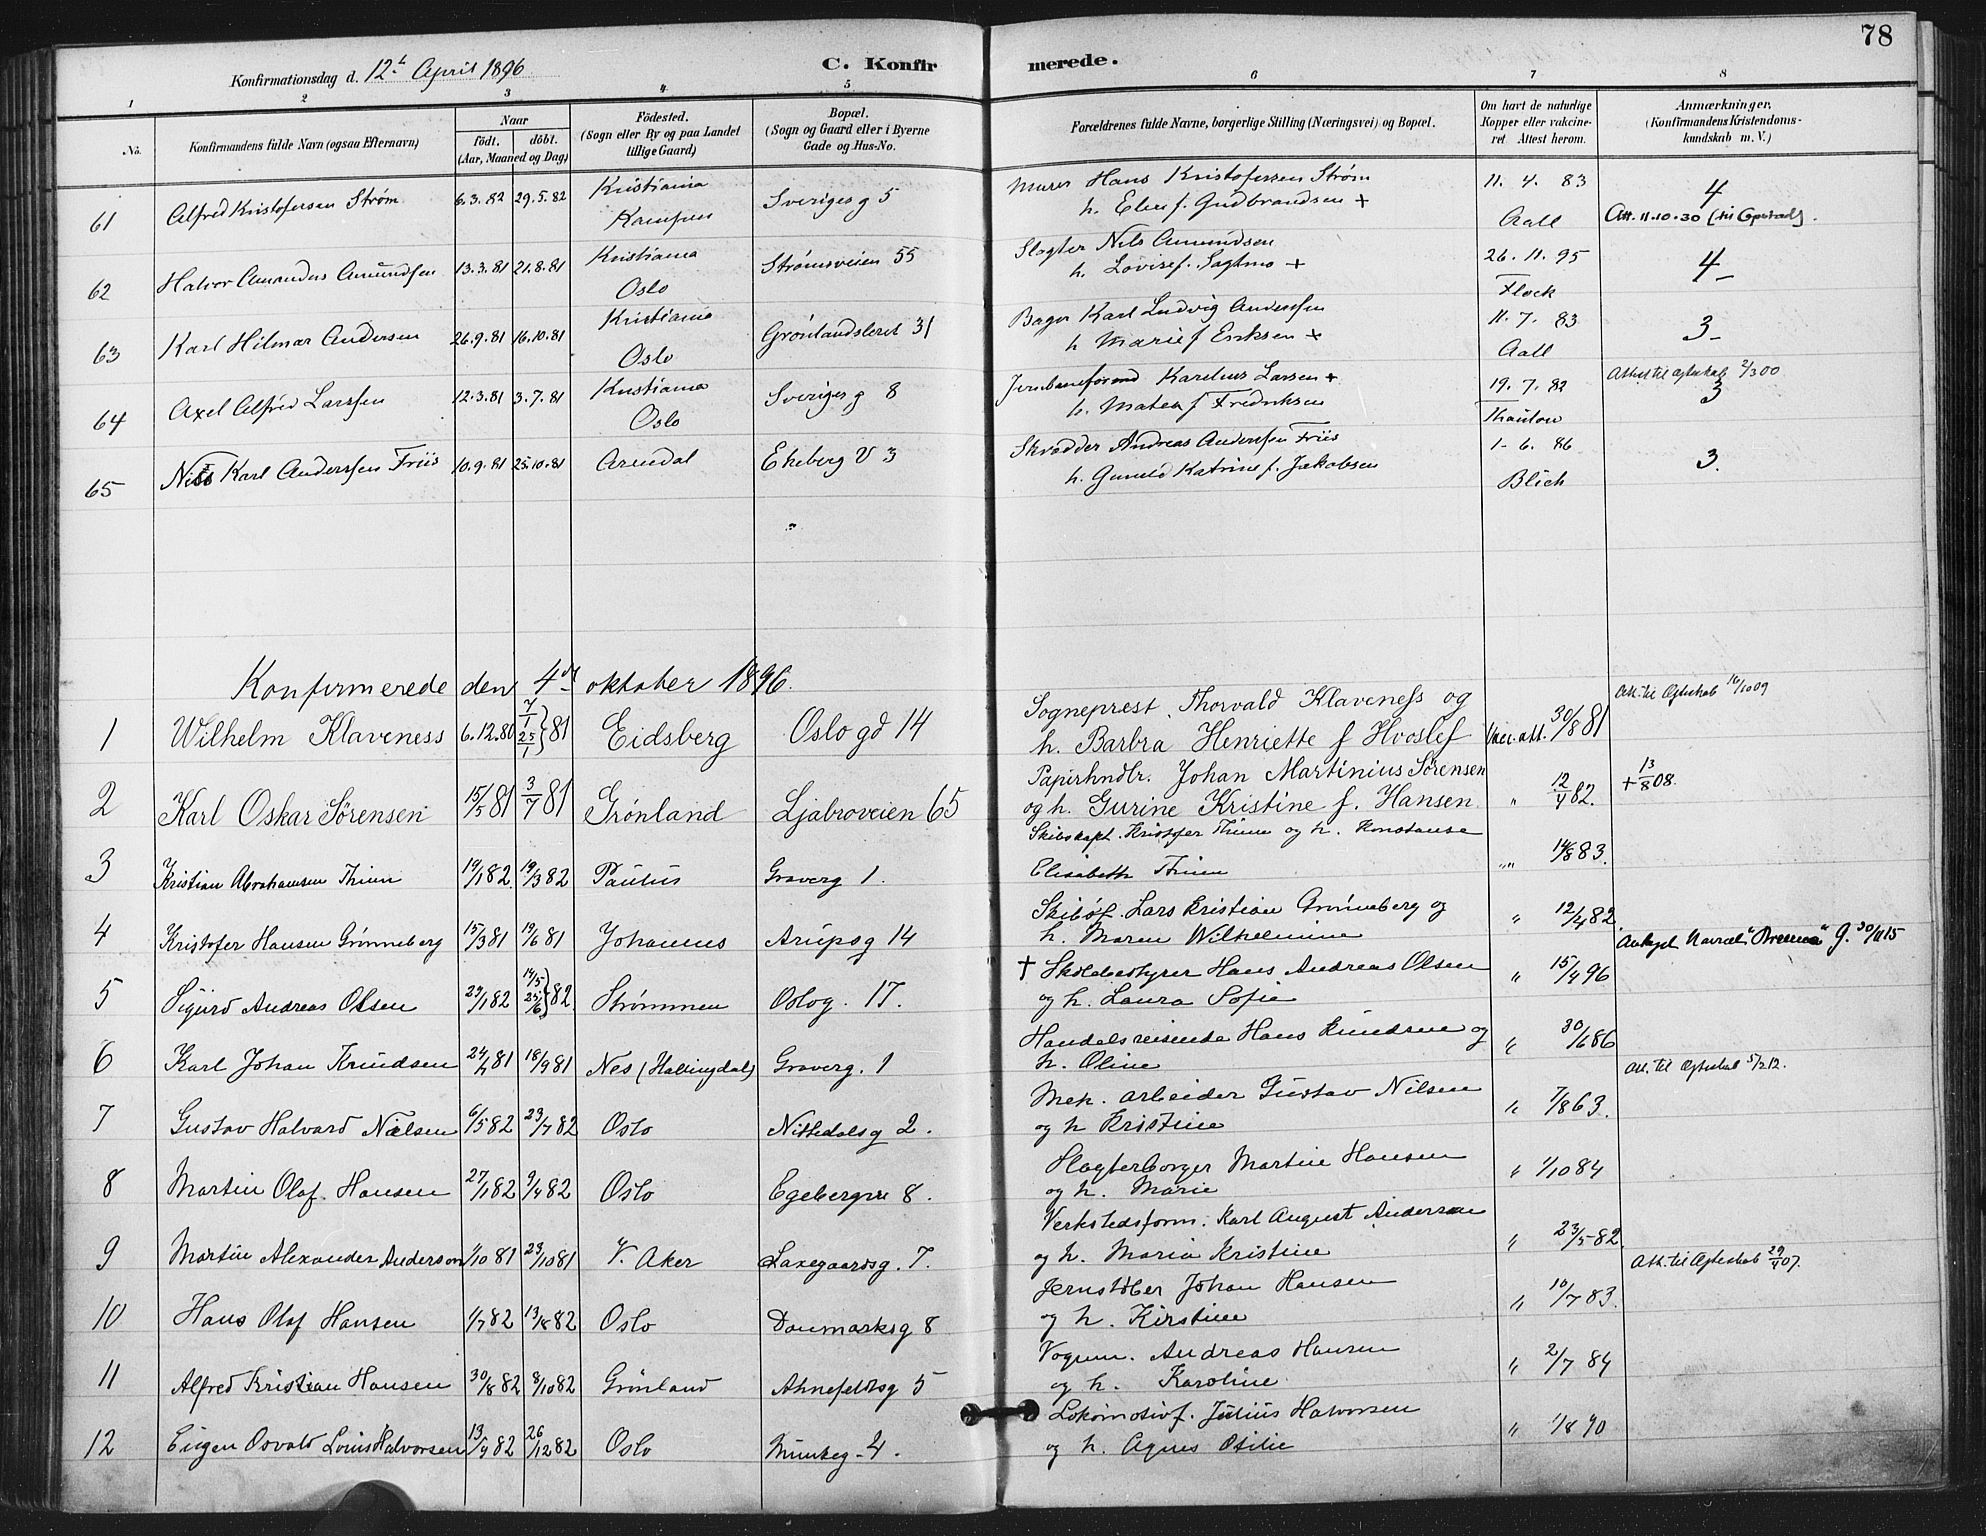 78
Konfirmationsdag d. 12t April 1896 C. Konfirmerede.
1 2 3 4 5 6 7 8
No. Konfirmandens fulde Navn (ogsaa Efternavn) Naar födt. döbt. (Aar, Maaned og Dag) Födested. (Sogn eller By og paa Landet tillige Gaard) Bopæl. (Sogn og Gaard eller i Byerne Gade og Hus-No. Forældrenes fulde Navne, borgerlige Stilling (Næringsvei) og Bopæl. Om havt de naturlige Kopper eller vakcineret Attest herom. Anmærkninger. (Konfirmandens Kristendomskundskab m. V.)
61 Alfred Kristofersen Strøm 6.3.82 29.5.82 Kristiania Kampen Sveriges g 5 Murer Hans Kristofersen Strøm h. Elen f. Gudbrandsen + 11. 4. 83 Aall 4 Att. 11.10.30
62 Halvor Amandus Amundsen 13.3.81 21.8.81 Kristiania Oslo Strømsveien 55 Slagter Nils Amundsen h. Lovise f. Sagtmo + 26. 11. 95 Flock 4
63 Karl Hilmar Andersen 26.9.81 16.10.81 Kristiania Oslo Grønlandsleret 31 Bager Karl Ludvig Anderssen h Marie f Eriksen + 11. 7. 83 Aall 3
64 Axel Alfred Larssen 12.3.81 3.7.81 Kristiania Oslo Sveriges g 8 Jernbaneformd Karelius Larsen + h. Matea f Fredriksen 19. 7. 82 Thaulow Attest til Ægteskab 2/3 00 3
65 Nils Karl Anderssen Friis 10.9.81 25.10.81 Arendal Ekeberg V 3 Skrædder Andreas Anderssen Friis h. Gunild Katrine f. Jakobsen 1-6. 86 Blich 3.
Konfirmerede den 4de oktober 1896.
1 Wilhelm Klaveness 6.12.80 7/1 25/1 } 81 Eidsberg Oslo gd 14 Sogneprest Thorvald Klaveness og h. Barbra Henriette f Hvoslef Vacc. att. 30/8 81 Att. til Ægteskab 16/10 09
2 Karl Oskar Sørensen 15/5 81 3/7 81 Grønland Ljabroveien 65 Papirhndlr. Johan Martinius Sørensen og h. Gurine Kristine f. Hansen " 12/4 82. + 13/8 08.
3 Kristian Abrahamsen Thime 19/1 82 19/3 82 Paulus Graverg 1. Skibskapt. Kristofer Thime og h. Konstanse Elisabeth Thime " 14/8 83.
4 Kristofer Hansen Grønneberg 15/3 81 19/6 81 Johannes Arups g 14 Lars Kristian Grønneberg og h. Maren Wilhelmine " 12/4 82
5 Sigurd Andreas Olsen 29/1 82 14/5 25/6 } 82 Strømmen Oslog. 17. † Skolebestyrer Hans Andreas Olsen og h. Laura Sofie " 15/4 96
6 Karl Johan Knudsen 24/4 81 18/9 81 Nes (Hallingdal) Graverg. 1 Handelsreisende Hans Knudsen og h. Oline " 30/6 86 Att. til Ægteskab 5/2 12.
7 Gustav Halvard Nilsen 6/5 82 23/7 82 Oslo Nittedals g 2. Mek. arbeider Gustav Nilsen og h Kristine " 7/8 63.
8 Martin Olaf Hansen 27/1 82 9/4 82 Oslo 8. Slagterborger Martin Hansen og h. Marie " 1/10 84
9 Martin Alexander Anderson 1/10 81 23/10 81 V. Aker Laxegaardsg. 7. Verkstedsform. Karl August Anderson og h. Maria Kristine " 23/5 82. Att. til Ægteskab 29/4 07.
10 Hans Olaf Hansen 1/7 82 13/8 82 Oslo Danmarks g 8 Jernstøber Johan Hansen og h. Kirstine " 10/7 83.
11 Alfred Kristian Hansen 30/8 82 8/10 82 Grønland Ahnefeldts g 5 Vognm. Andreas Hansen og h. Karoline " 2/7 84
12 Eugen Osvald Louis Halvorsen 13/9 82 26/12 82 Oslo Munkeg. 4. Lokomotivf. Julius Halvorsen og h. Agnes Otilie " 1/8 90